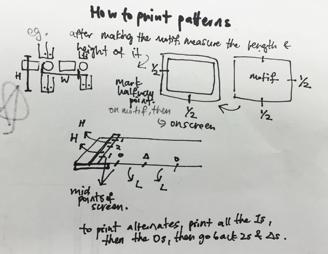 How to print patterns
eg. after making the motif, measure the length &
height of it
H
W
mark
halfway
point
on motif, then
onscreen
1/2
1/2
motif
1/2
1/2
H
H
1
2
O
Δ
O
L
L
mid
points of
screen.
to print alternates, print all the 1s,
then the Os, then go back 2s & Δs.